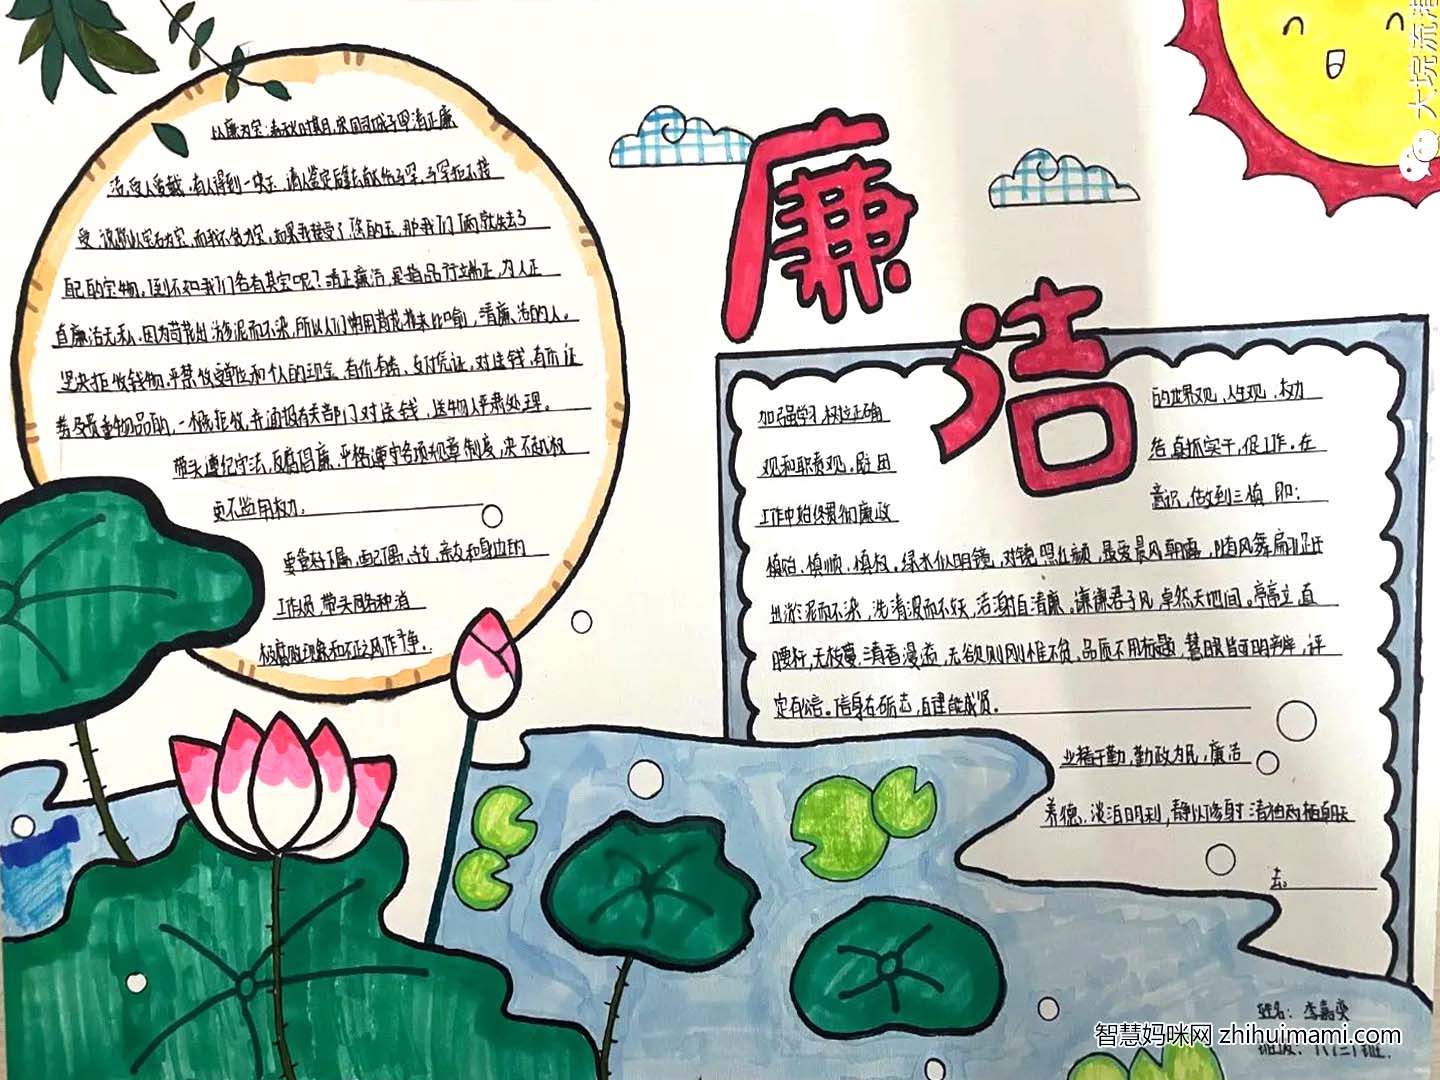 廉
洁
以廉为宝:春秋时期,宋国司城子罕清正廉
洁,受人爱戴,有人得到一块玉,请人鉴定后拿去献给子罕,子罕拒不接
受,说您以宝石为宝,而我不贪为宝,如果我接受了您的玉,那我们俩就失去了
自己的宝物。倒不如我们各有其宝呢?清正廉洁,是指品行端正,为人正
直廉洁无私,因为荷花出淤泥而不染,所以人们常用荷花来比喻,清廉洁的人。
坚决拒收钱物。严禁收受单位和个人的现金、有价有券、支付凭证。对送钱、有价证
券及贵重物品的,一概拒收,并通报有关部门对送钱、送物人严肃处理。
带头遵纪守法,反腐倡廉,严格遵守各项规章制度,决不以权
更不滥用权力。
要管好下属,配偶、子女,亲友和身边的
工作人员,带头同各种消
极腐败现象和不正之风作斗争。
加强学习,树立正确 的世界观,人生观,权力
观和职责观。 结,真抓实干,促工作。在
工作中始终贯彻廉政 意识,做到三慎,即:
慎始,慎顺,慎权。绿水似明镜,对镜照红颜,最爱晨风朝露,随风舞扁
出淤泥而不染,洗清涟而不妖,洁净自清廉。谦谦君子风,卓然天地间。亭亭立,直
腰杆,无枝蔓,清香漫溢,无欲则刚惟不贪。品质不用标题,慧眼皆可明辨,评
定有公言。信身在砺志,自建能成贤。
业精于勤,勤政为民,廉洁
养德,淡泊明利,静以修身,清袖两
去。
姓名:李嘉奕
班级:
大垸流清
智慧妈咪网 zhihuimami.com